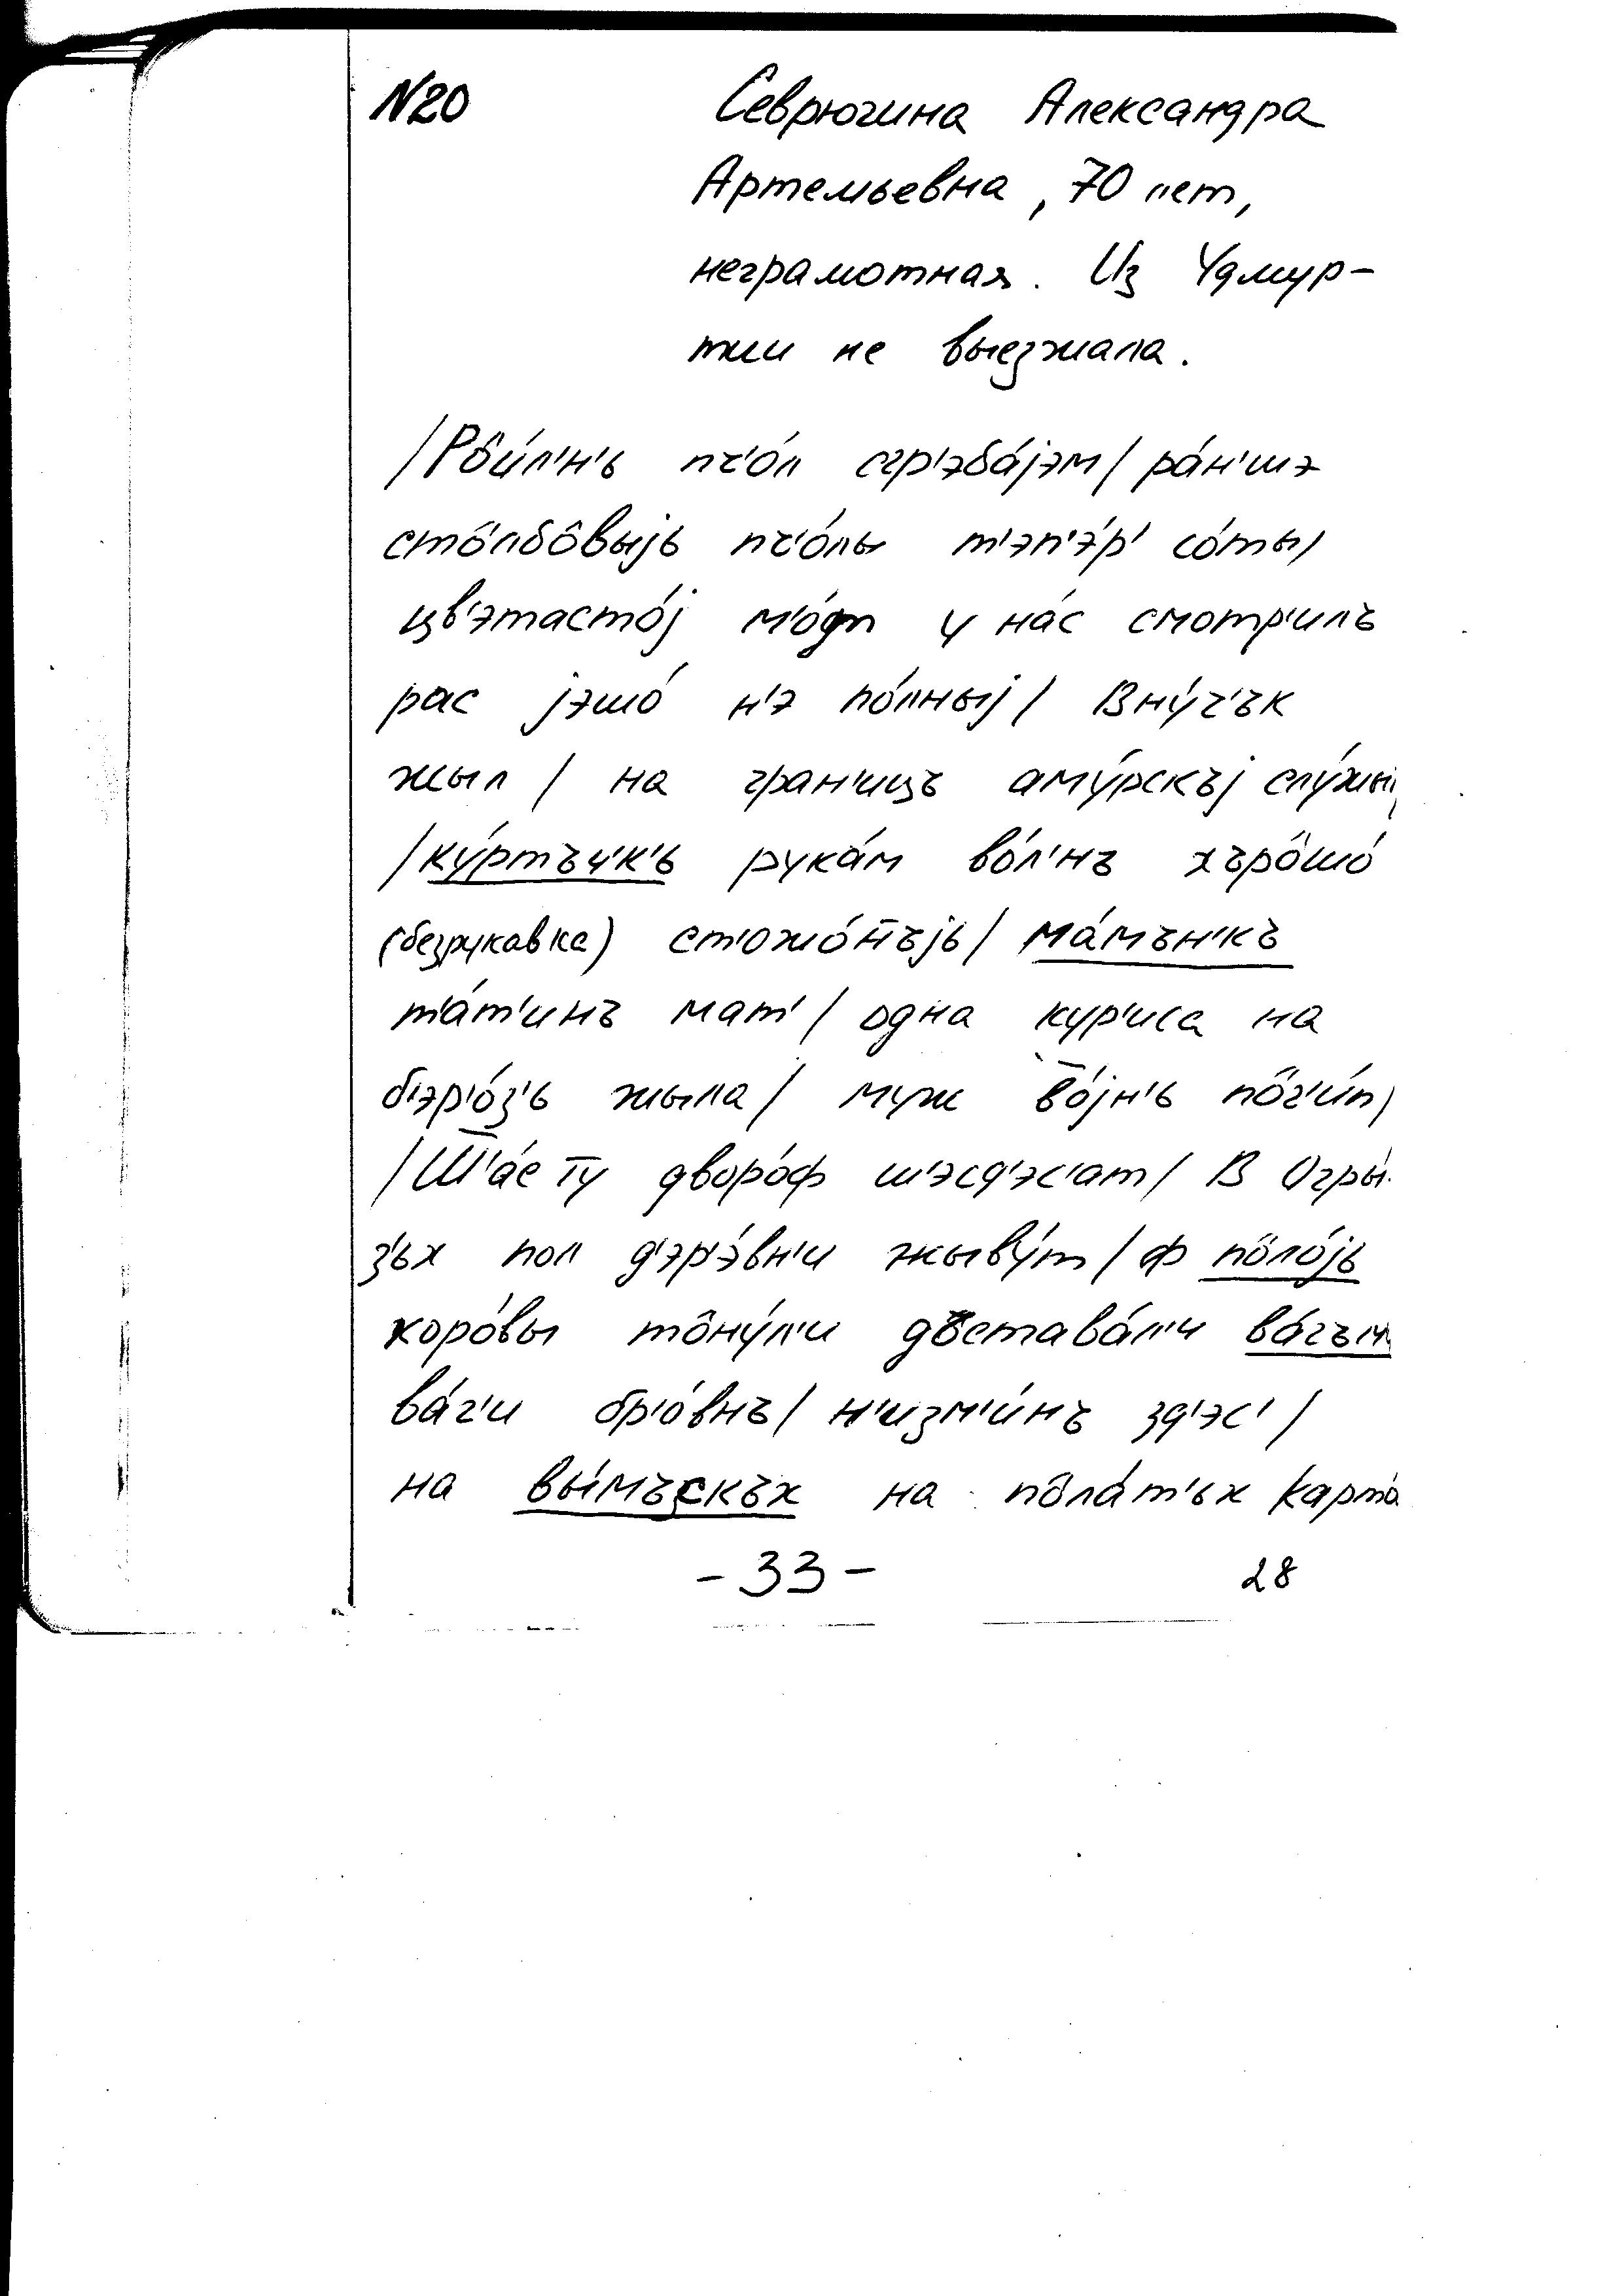 N20 Севрюгина Александра
Артемьевна, 70 лет,
неграмотная. Из Удмур-
тии не выезжала.
/Рôи́л'н'ь пч'о́л сгр'эба́jэм/ ра́н'шэ
стôлбôвыjь пч'о́лы т'эп'э́р' со́ты/
цв'этасто́j м'о́т у на́с смотр'илъ
рас jэшо́ н'э по́лныj/ Вну́ч'ък
жыл / на гран'ицъ аму́рскъj слу́жыл
/ку́ртъч'к'ь рука́м во́л'нъ хъро́шо́
(безрукавка) ст'ожо́н̄ъjь/ ма́мън'къ
т'а́т'инъ мат' / одна кур'иса на
б'эр'о́з'ь жыла/ муж в̄о́jн'ь пôг'и́п/
/Ш̄'а́с т̄у дворо́ф ш'эсд'эс'ат/ В Огры́-
з'ьх пол д'эр'э́вн'и жыву́т/ ф пôло́jь
коро́вы тôну́л'и дъстава́л'и ва́гъм
ва́г'и бр'о́внъ/ н'изм'и́нъ зд'эс' /
на вы́мъскъх на пôла́т'ьх карто
-33- 28